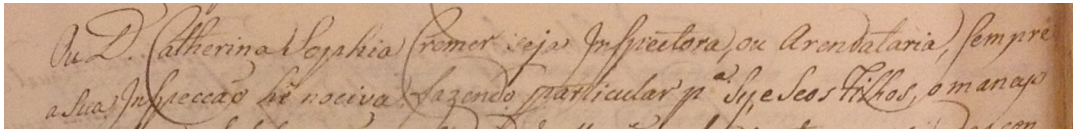 Ou D. Catherina Sophia Cremer seja Inspectora, ou Arendataria, sempre
a sua Inspecção hé nociva fazendo particular p.ª Sy, e Seos Filhos, o manejo